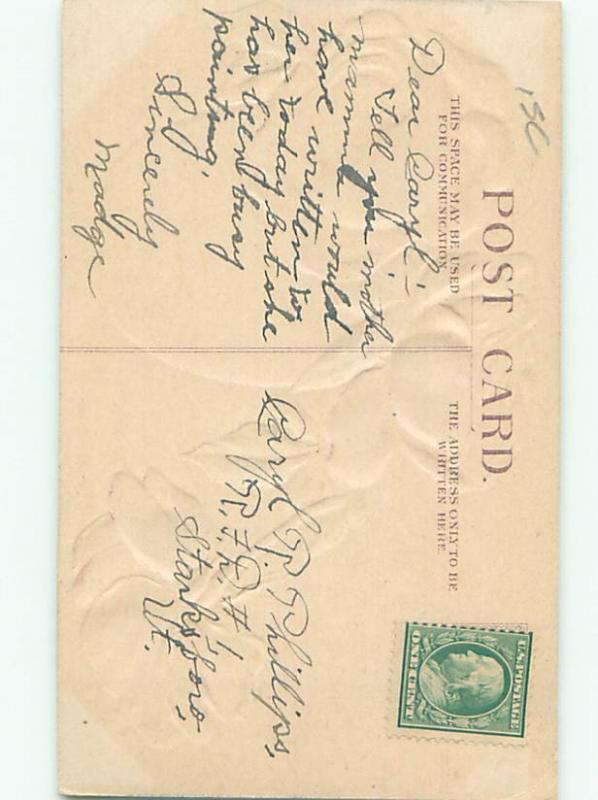 15C
POST CARD.
THIS SPACE MAY BE USED
FOR COMMUNICATION
THE ADDRESS ONLY TO BE
WRITTEN HERE.
U.S. POSTAGE
ONE CENT
Dear Caryl:-
Tell you mother
mamma would
have written to
her today but she
has been busy
painting,
Sincerely
Madge
Caryl P. Phillips,
R.F.D. #1
Starksboro,
Vt.